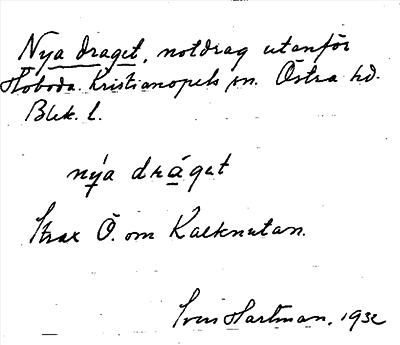 Nya draget, notdrag utanför
Höboda. Kristianopels sn. Östra hd.
Blek. l.
nýa drág̀et
Strax Ö. om Kalknutan.
Sven Hartman, 1932